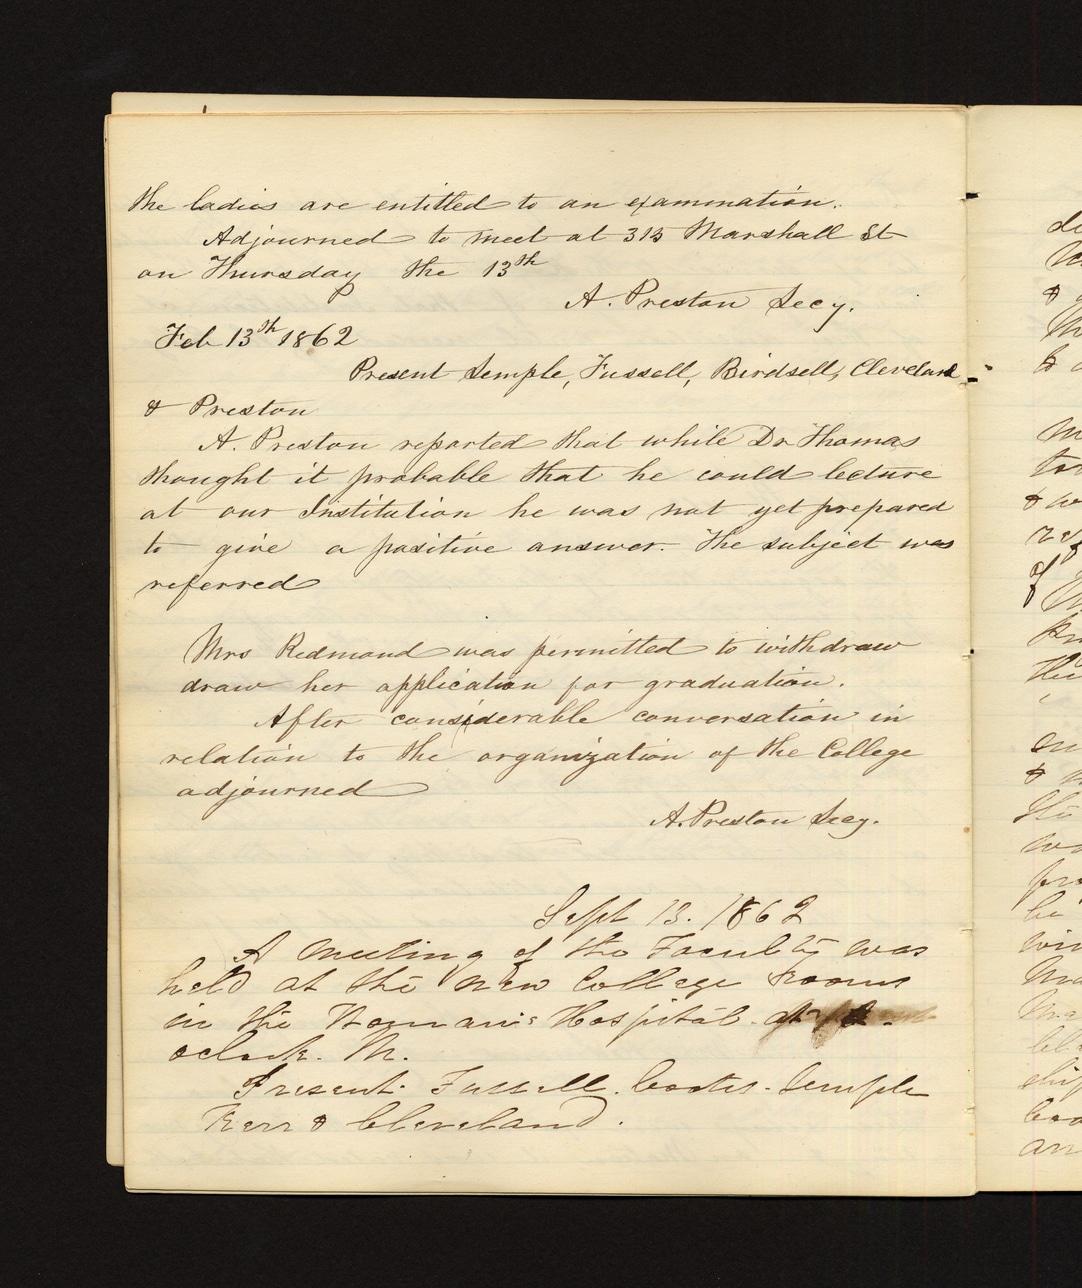 the ladies are entitled to an examination.
Adjourned to meet at Marshall St
on Thursday the 13th
A. Preston Secy.
Feb 13th 1862
Present Semple, Fussell, Birdsell, Cleveland
& Preston
A. Preston reported that while Dr Thomas
thought it probable that he could lecture
at our Institution he was not yet prepared
to give a positive answer. The subject was
referred
Mrs Redmond was permitted to withdraw
draw her application for graduation.
After considerable conversation in
relation to the organization of the College
adjourned
A. Preston Secy.
Sept 13. 1862
A meeting of the Faculty was
held at the New College Rooms
in the Womans Hospital. at
oclock. M.
Present. Fussell. Coates. Semple
Kerr & Cleveland.